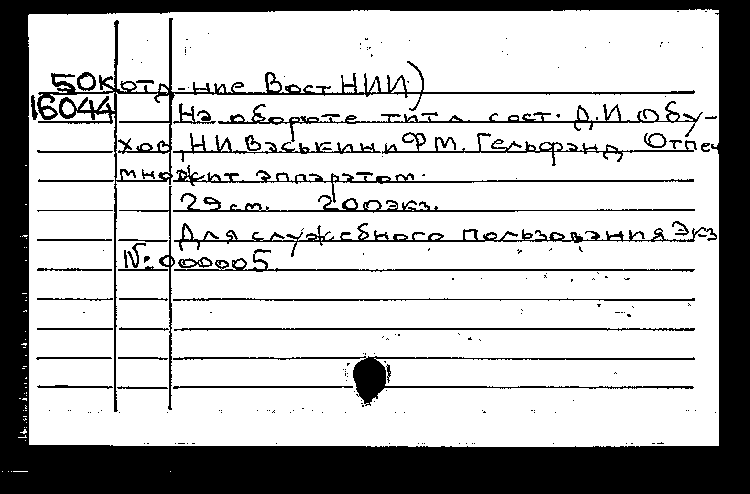 50К отд-ние ВостНИИ)
16044 На обороте тит л. сост. Д.И.Обу-
хов, Н.И.Васькин и Ф.М.Гельфанд Отпеч
множит. аппаратом.
29 см. 200 экз.
Для служебного пользования Экз
№: 000005